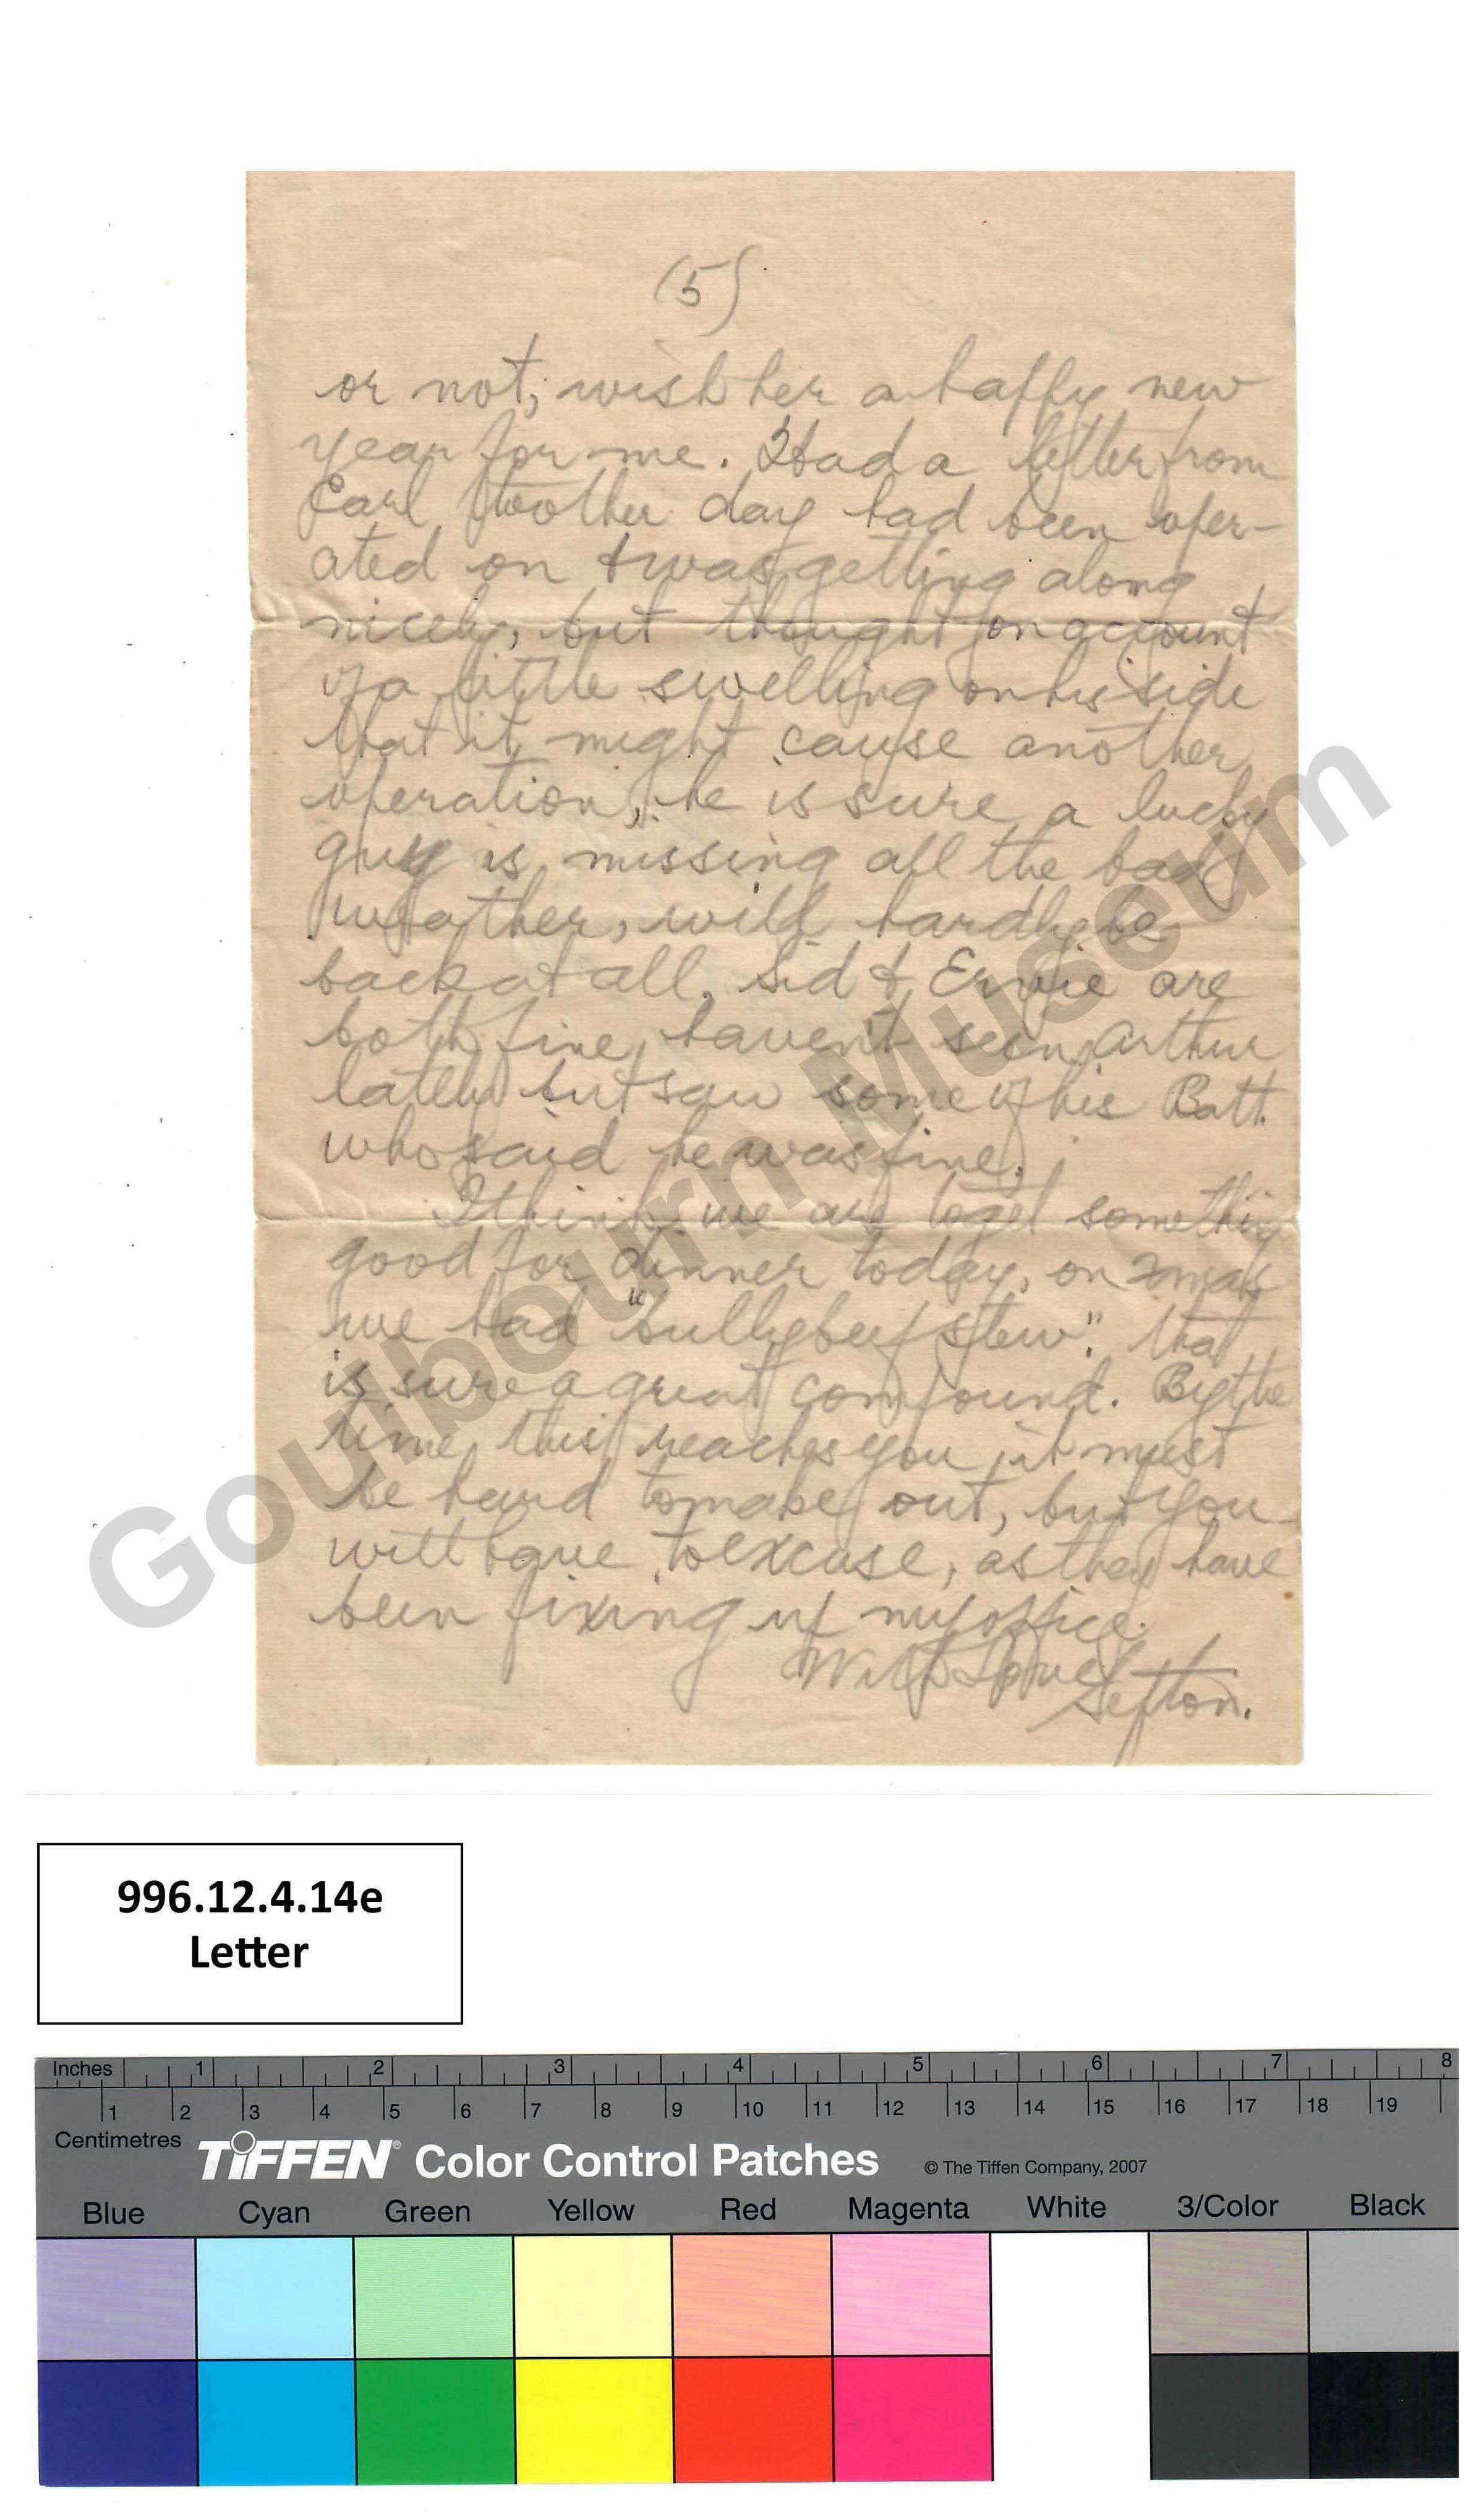 (5)
or not, wish her a happy new
year for me. Had a letter from
Earl tother day had been oper-
ated on & was getting along
nicely, but thought on account
of a little swelling on his side
that it might cause another
operation, he is sure a lucky
guy is missing all the bad
weather, will hardly be
back at all. Sid & Ervie are
both fine, haven't seen Arthur
lately but saw some of his Batt.
who said he was fine.
I think we are to get something
good for dinner today, on xmas
we had "bullybeef stew". that
is sure a great compound. By the
time this reaches you it must
be hard to make out, but you
will have to excuse, as they have
been fixing up my office.
With Love
Sefton.
Goulbourn Museum
996.12.4.14e
Letter
Inches 1 2 3 4 5 6 7 8
1 2 3 4 5 6 7 8 9 10 11 12 13 14 15 16 17 18 19
Centimetres
TIFFEN® Color Control Patches © The Tiffen Company, 2007
Blue Cyan Green Yellow Red Magenta White 3/Color Black